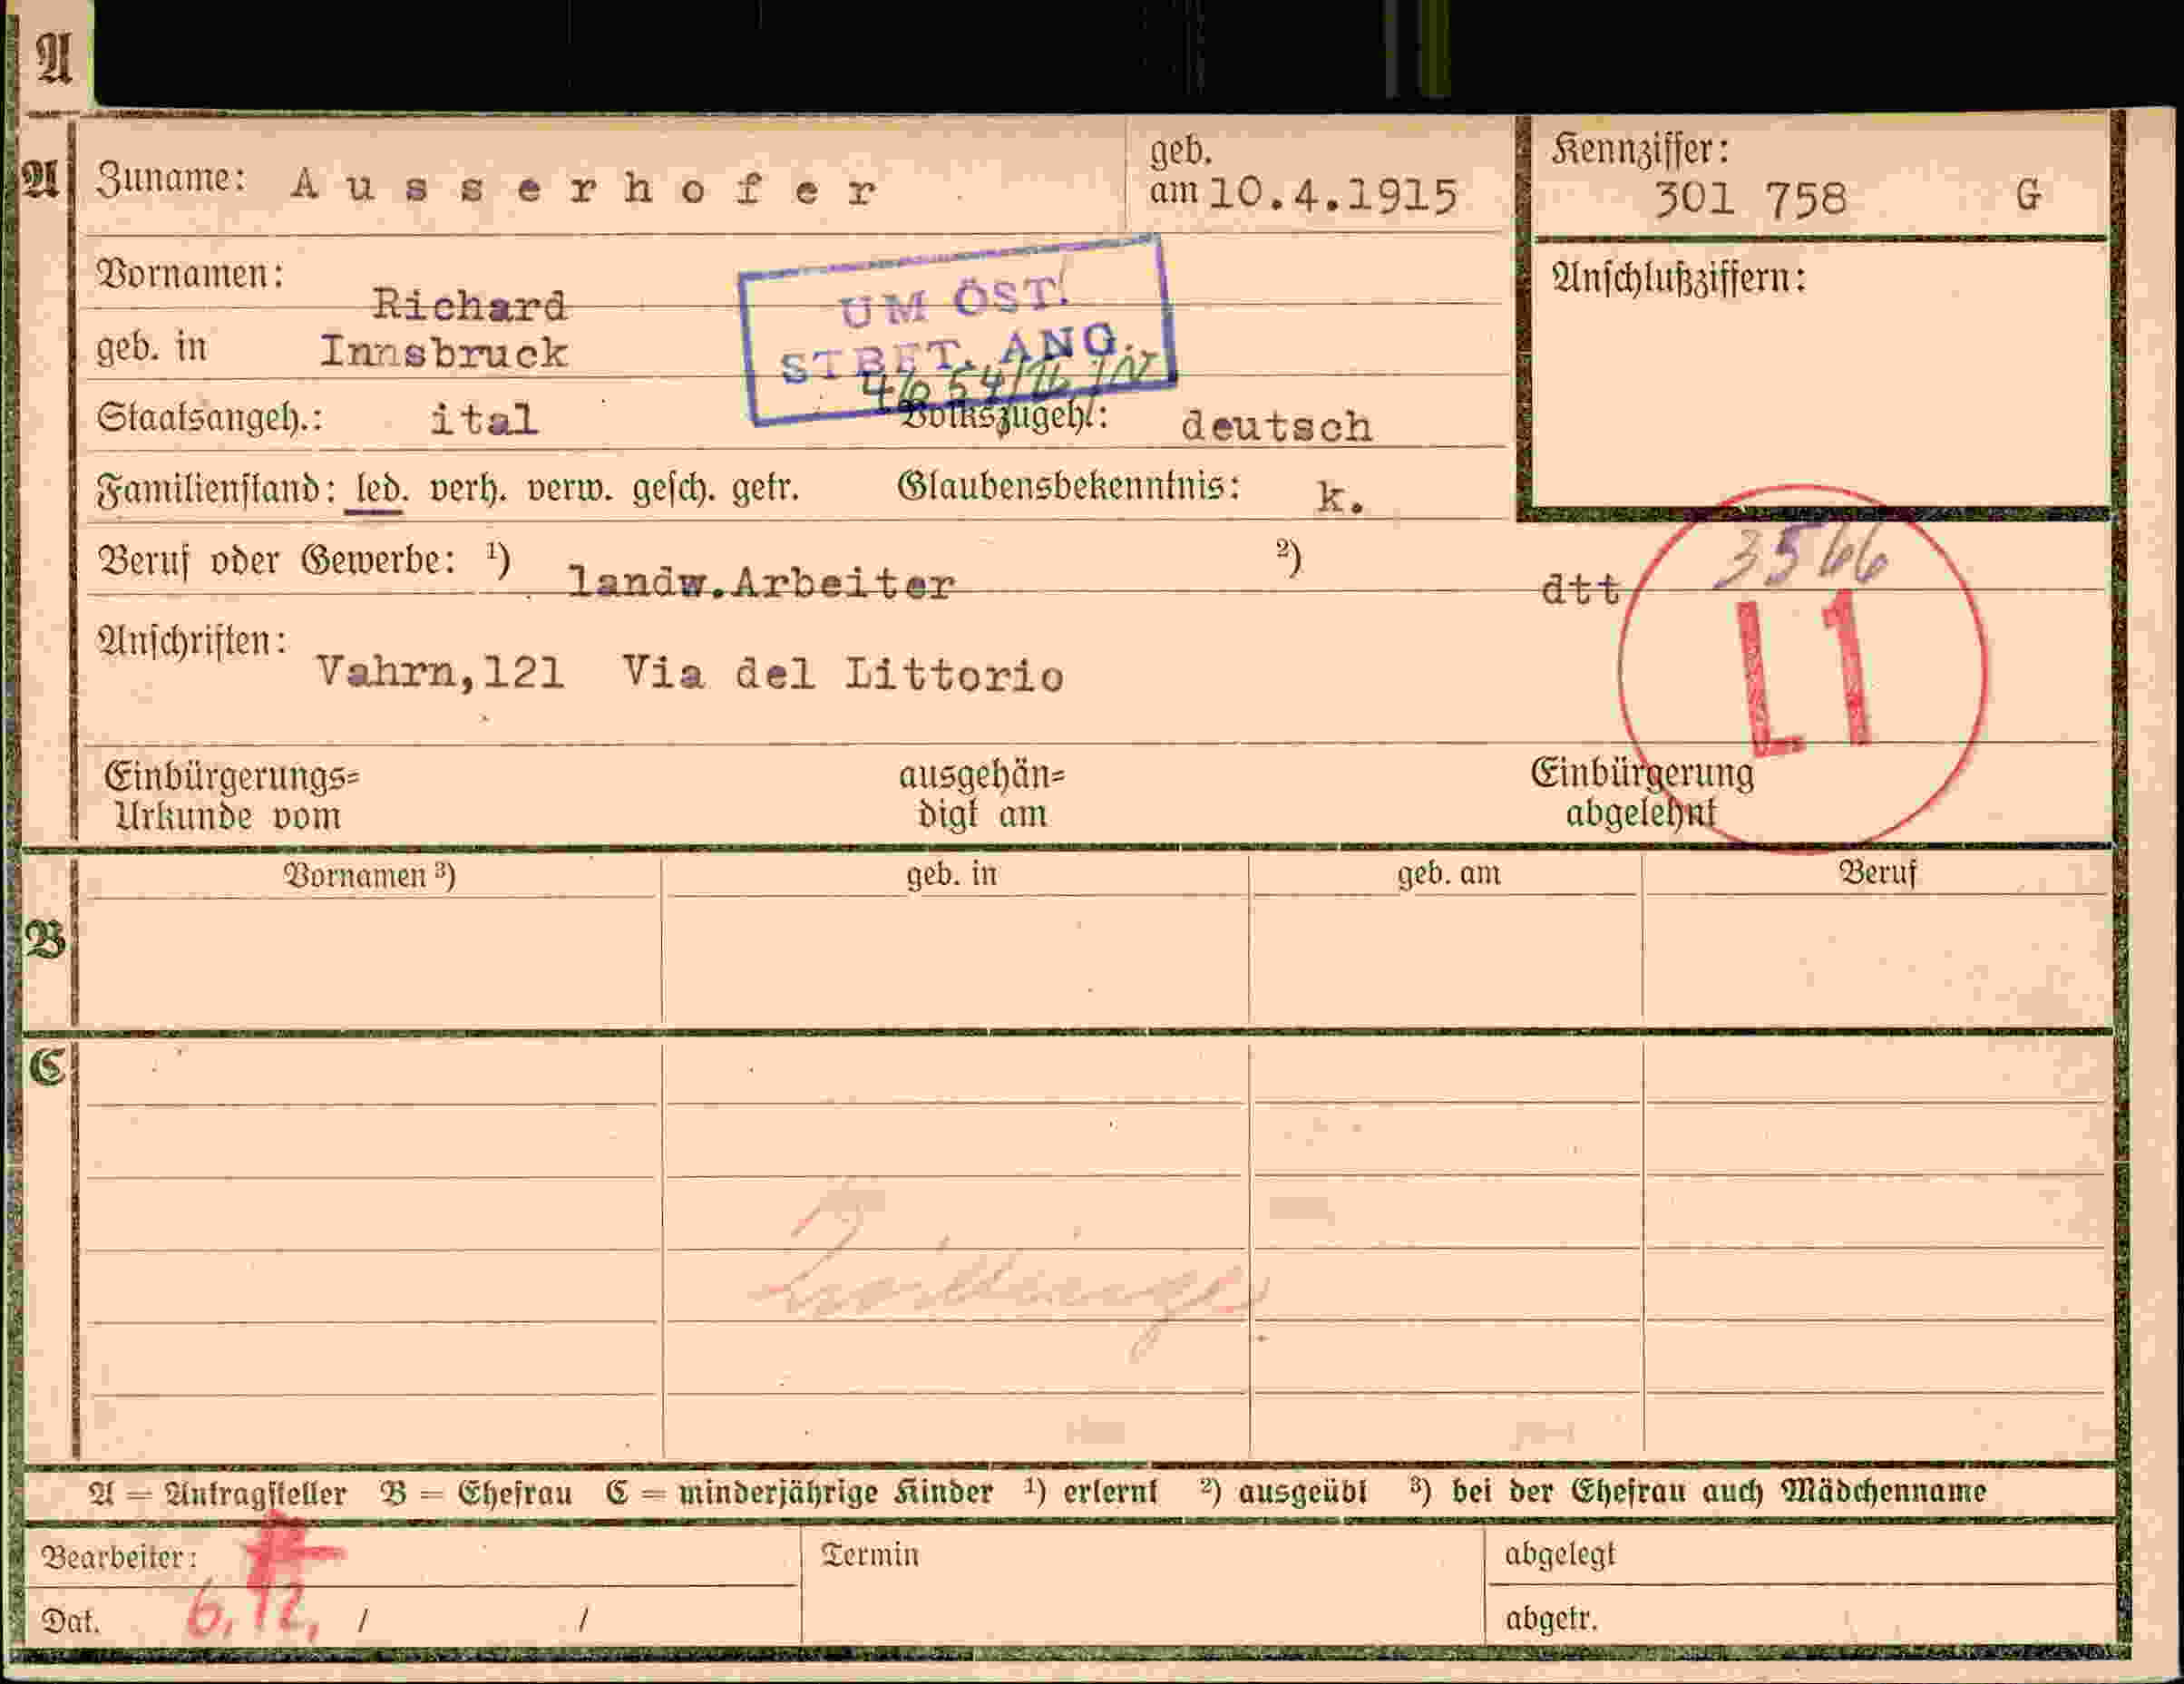 A
A
Zuname: Ausserhofer geb. am 10.4.1915
Kennziffer: 301 758 G
Vornamen: Richard
UM ÖST. STBÜT. ANG.
Anschlußziffern:
geb. in Innsbruck
Staatsangeh.: ital Volkszugeh.: deutsch
Familienstand: led. verh. verw. gesch. getr. Glaubensbekenntnis: k.
3566
Beruf oder Gewerbe: ¹) landw.Arbeiter ²) dtt
L1
Anschriften: Vahrn,121 Via del Littorio
Einbürgerungs= Urkunde vom ausgehän= digt am Einbürgerung abgelehnt
Vornamen ³) geb. in geb. am Beruf
B
C
A = Antragsteller B = Ehefrau C = minderjährige Kinder ¹) erlernt ²) ausgeübt ³) bei der Ehefrau auch Mädchenname
Bearbeiter: Termin abgelegt
Dat. 6.12. / / abgetr.